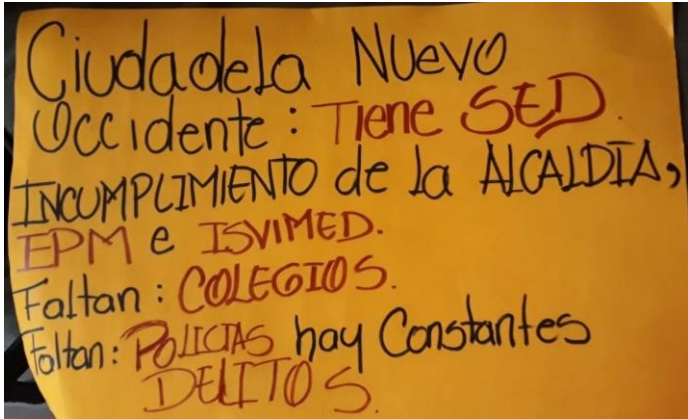 Ciudadela Nuevo
Occidente: Tiene SED.
INCUMPLIMIENTO de la ALCALDÍA,
EPM e ISVIMED.
Faltan: COLEGIOS.
Faltan: POLICIAS hay Constantes
DELITOS.